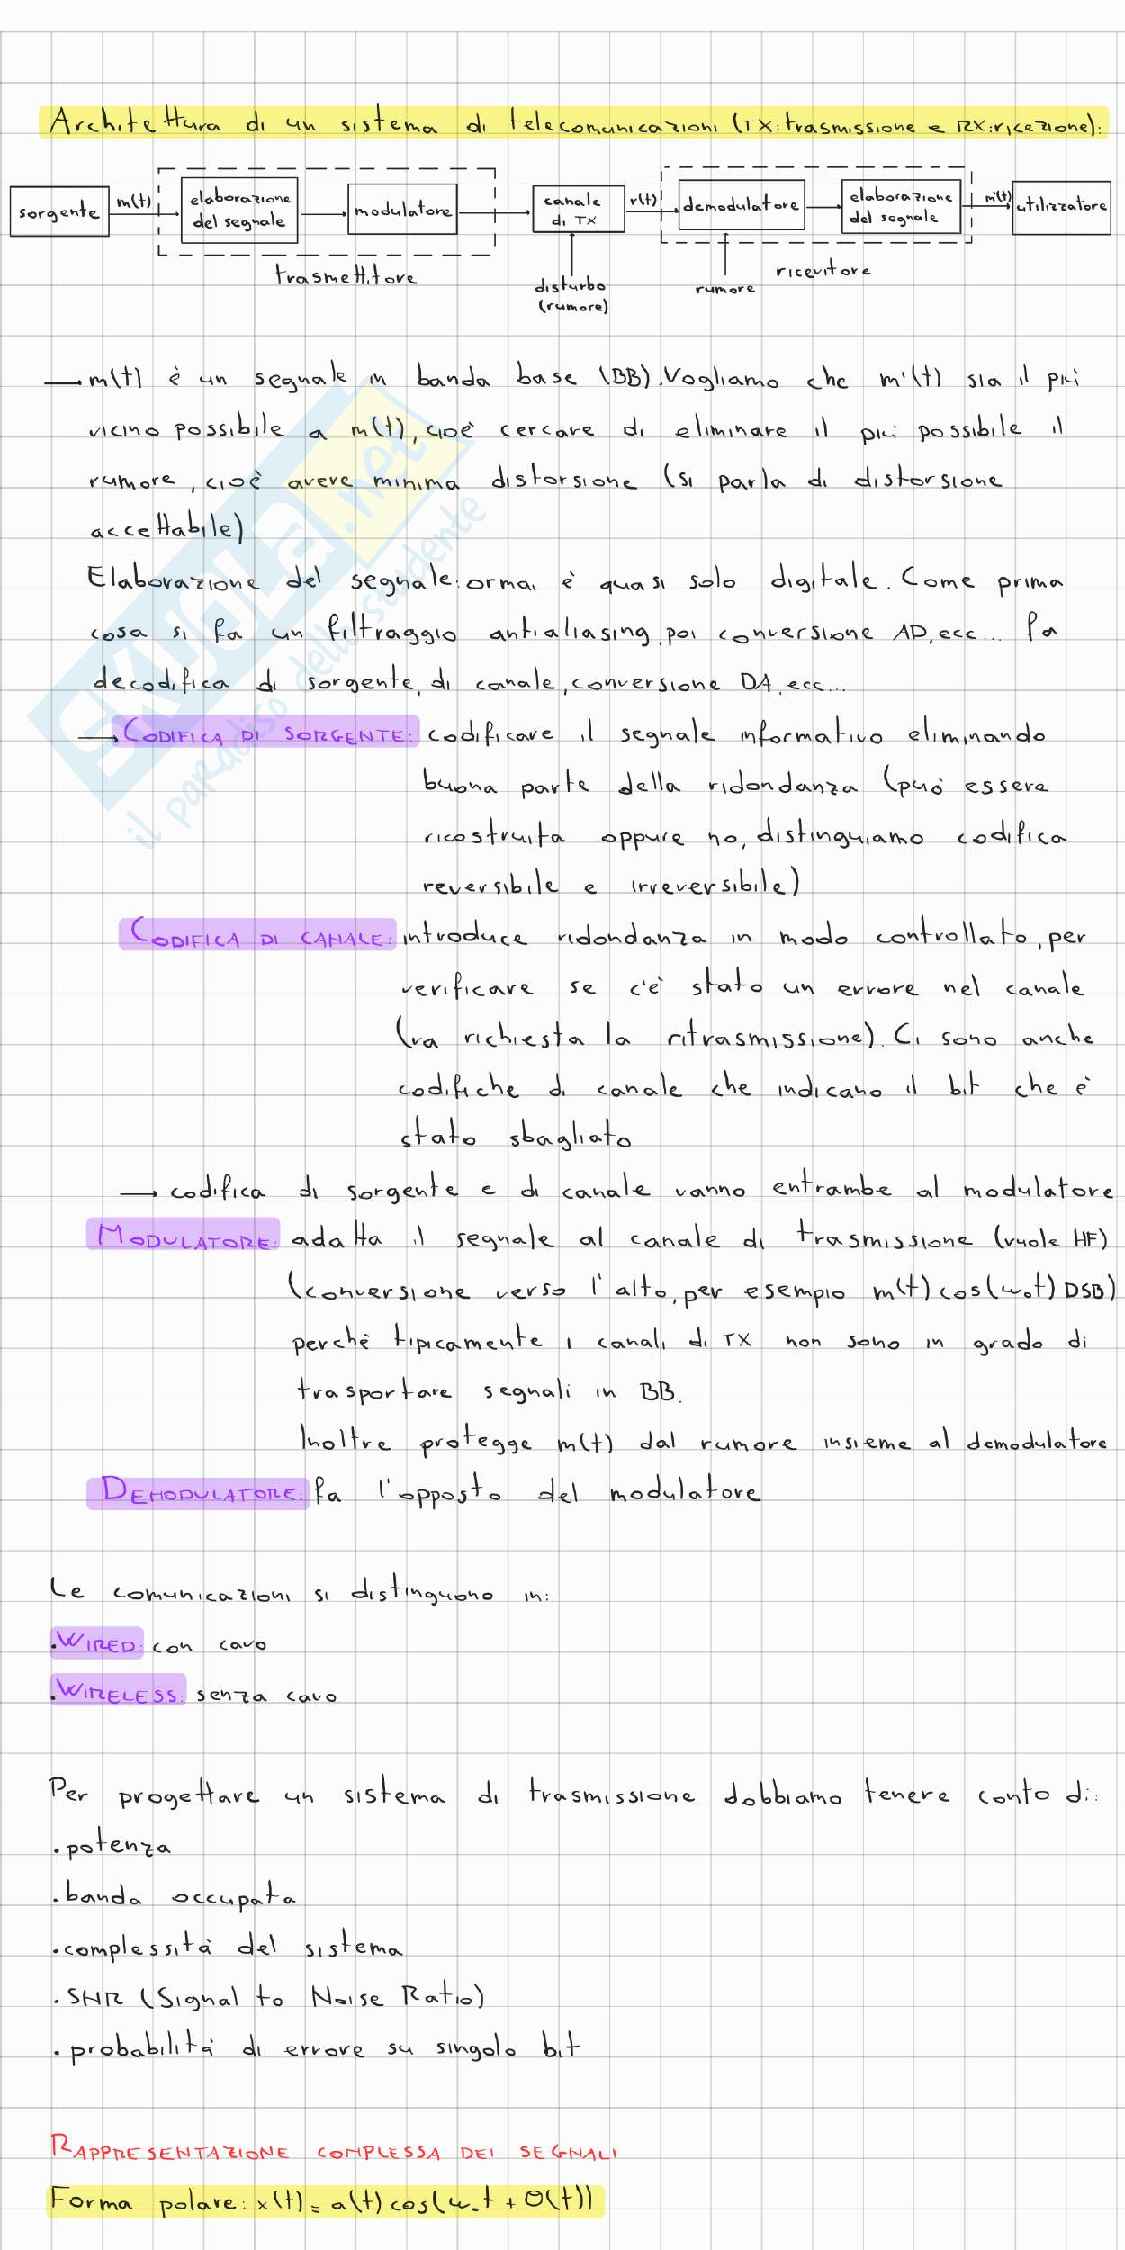 Architettura di un sistema di telecomunicazioni (TX: trasmissione e RX: ricezione):
sorgente
m(t)
elaborazione
del segnale
modulatore
canale
di TX
r(t)
demodulatore
elaborazione
del segnale
m'(t)
utilizzatore
trasmettitore
disturbo
(rumore)
rumore
ricevitore
→ m(t) è un segnale in banda base (BB). Vogliamo che m'(t) sia il più
vicino possibile a m(t), cioè cercare di eliminare il più possibile il
rumore, cioè avere minima distorsione (si parla di distorsione
accettabile)
Elaborazione del segnale: ormai è quasi solo digitale. Come prima
cosa si fa un filtraggio antialiasing, poi conversione AD, ecc... fa
decodifica di sorgente, di canale, conversione DA, ecc...
→ CODIFICA DI SORGENTE: codificare il segnale informativo eliminando
buona parte della ridondanza (può essere
ricostruita oppure no, distinguiamo codifica
reversibile e irreversibile)
CODIFICA DI CANALE: introduce ridondanza in modo controllato, per
verificare se c'è stato un errore nel canale
(va richiesta la ritrasmissione). Ci sono anche
codifiche di canale che indicano il bit che è
stato sbagliato
→ codifica di sorgente e di canale vanno entrambe al modulatore
MODULATORE: adatta il segnale al canale di trasmissione (vuole HF)
(conversione verso l'alto, per esempio m(t)cos(ω₀t) DSB)
perché tipicamente i canali di TX non sono in grado di
trasportare segnali in BB.
Inoltre protegge m(t) dal rumore insieme al demodulatore
DEMODULATORE: fa l'opposto del modulatore
Le comunicazioni si distinguono in:
.WIRED: con cavo
.WIRELESS: senza cavo
Per progettare un sistema di trasmissione dobbiamo tenere conto di:
.potenza
.banda occupata
.complessità del sistema
.SNR (Signal to Noise Ratio)
.probabilità di errore su singolo bit
RAPPRESENTAZIONE COMPLESSA DEI SEGNALI
Forma polare: x(t) = a(t)cos(ω₀t + θ(t))
SKUOLA.net
il paradiso dello studente